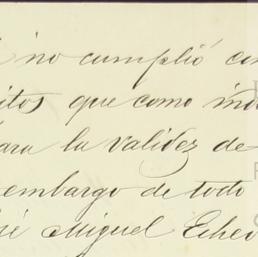 no cumplió con
itos que como ind
para la validez de
embargo de todo
José Miguel Eche